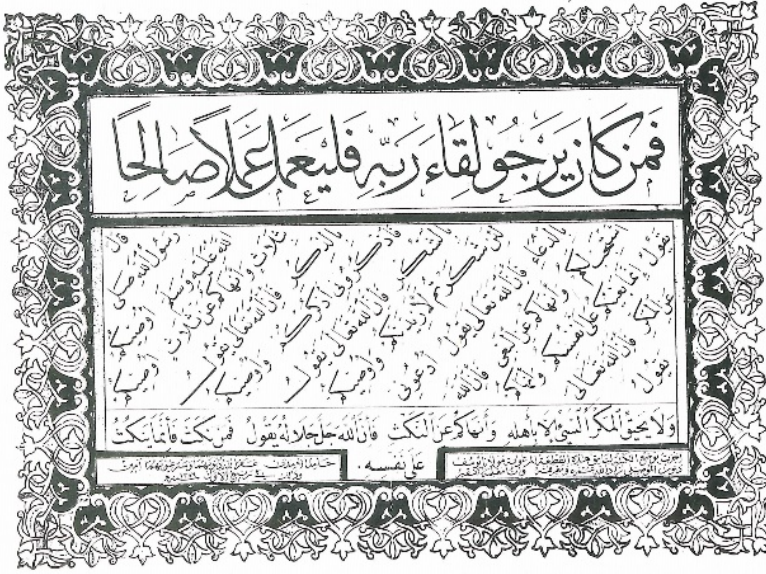 فَمَن كَانَ يَرْجُو لِقَاءَ رَبِّهِ فَلْيَعْمَلْ عَمَلًا صَالِحًا
قال
رسول الله صلى
الله عليه وسلم أوصيكم
بثلاث وأنهاكم عن ثلاث أوصيكم
بالذكر فان الله تعالى يقول
فاذكروني أذكركم وأوصيكم
بالشكر فان الله تعالى يقول
لئن شكرتم لأزيدنكم وأوصيكم
بالدعاء فان الله تعالى يقول أدعوني
أستجب لكم وأنهاكم عن البغي فان الله
يقول انما بغيكم على أنفسكم وأنهاكم
عن المكر فان الله تعالى
يقول
ولا يحيق المكر السيئ إلا بأهله وأنهاكم عن النكث فان الله جل جلاله يقول فمن نكث فانما ينكث
على نفسه